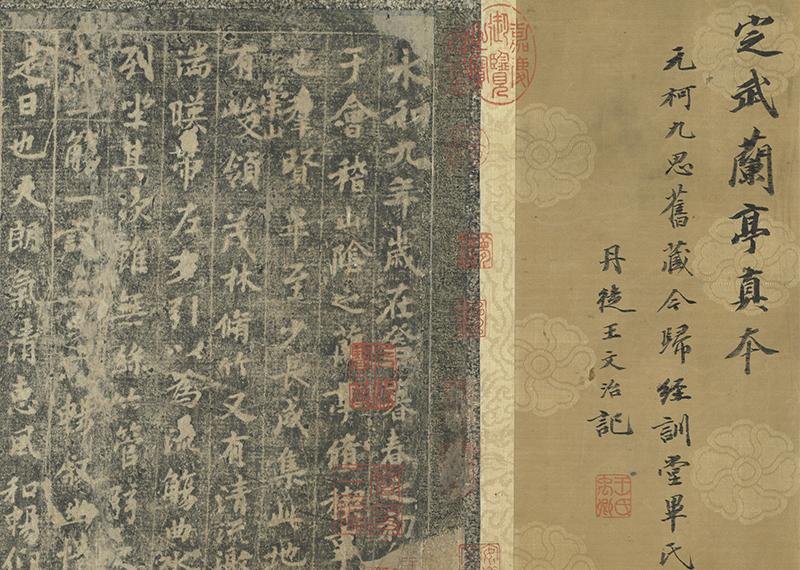 定武蘭亭真本
元柯九思舊藏今歸經訓堂畢氏
丹徒王文治記
王氏禹卿
嘉慶御覽之寶
永和九年歲在癸丑暮春之初
于會稽山陰之蘭亭脩稧事
也羣賢畢至少長咸集此地
有崇山峻領茂林脩竹又有清流激
湍暎帶左右引以為流觴曲水
列坐其次雖無絲竹管弦之
盛一觴一詠亦足以暢敘幽情
是日也天朗氣清惠風和暢仰